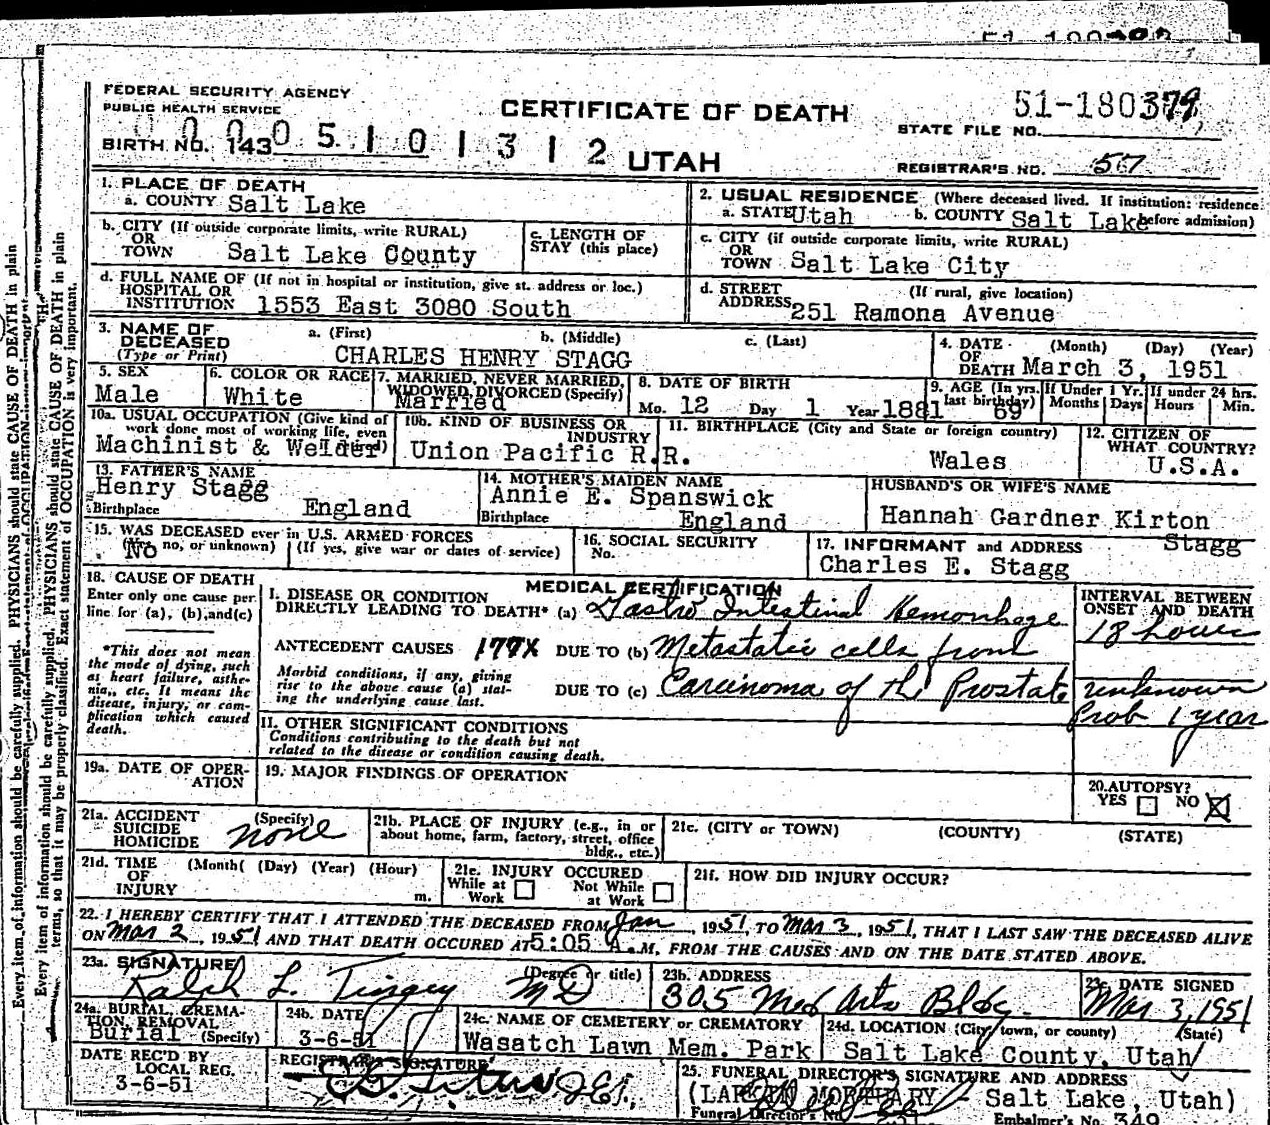 FEDERAL SECURITY AGENCY
PUBLIC HEALTH SERVICE
CERTIFICATE OF DEATH
51-180379
STATE FILE NO.
BIRTH NO. 143 0 0 0 0 5 1 0 1 3 1 2
UTAH
REGISTRAR'S NO. 57
1. PLACE OF DEATH
a. COUNTY Salt Lake
2. USUAL RESIDENCE (Where deceased lived. If institution: residence before admission)
a. STATE Utah b. COUNTY Salt Lake
b. CITY (If outside corporate limits, write RURAL)
OR
TOWN Salt Lake County
c. LENGTH OF
STAY (this place)
c. CITY (if outside corporate limits, write RURAL)
OR
TOWN Salt Lake City
d. FULL NAME OF (If not in hospital or institution, give st. address or loc.)
HOSPITAL OR
INSTITUTION 1553 East 3080 South
d. STREET (If rural, give location)
ADDRESS 251 Ramona Avenue
3. NAME OF DECEASED a. (First) b. (Middle) c. (Last)
(Type or Print) CHARLES HENRY STAGG
4. DATE (Month) (Day) (Year)
OF
DEATH March 3, 1951
5. SEX
Male
6. COLOR OR RACE
White
7. MARRIED, NEVER MARRIED,
WIDOWED, DIVORCED (Specify)
Married
8. DATE OF BIRTH
Mo. 12 Day 1 Year 1881
9. AGE (In yrs. last birthday) 69
If Under 1 Yr. Months Days
If under 24 hrs. Hours Min.
10a. USUAL OCCUPATION (Give kind of
work done most of working life, even
Machinist & Welder
10b. KIND OF BUSINESS OR
INDUSTRY
Union Pacific R.R.
11. BIRTHPLACE (City and State or foreign country)
Wales
12. CITIZEN OF
WHAT COUNTRY?
U.S.A.
13. FATHER'S NAME
Henry Stagg
Birthplace England
14. MOTHER'S MAIDEN NAME
Annie E. Spanswick
Birthplace England
HUSBAND'S OR WIFE'S NAME
Hannah Gardner Kirton
Stagg
15. WAS DECEASED ever in U.S. ARMED FORCES
no, or unknown) (If yes, give war or dates of service)
No
16. SOCIAL SECURITY
No.
17. INFORMANT and ADDRESS
Charles E. Stagg
18. CAUSE OF DEATH
Enter only one cause per
line for (a), (b), and (c)
*This does not mean
the mode of dying, such
as heart failure, asthe-
nia, etc. It means the
disease, injury, or com-
plication which caused
death.
MEDICAL CERTIFICATION
I. DISEASE OR CONDITION
DIRECTLY LEADING TO DEATH* (a) Gastro Intestinal Hemorrhage
ANTECEDENT CAUSES 177X DUE TO (b) Metastatic cells from
Morbid conditions, if any, giving
rise to the above cause (a) stat-
ing the underlying cause last.
DUE TO (c) Carcinoma of the Prostate
INTERVAL BETWEEN
ONSET AND DEATH
18 hours
unknown
Prob 1 year
II. OTHER SIGNIFICANT CONDITIONS
Conditions contributing to the death but not
related to the disease or condition causing death.
19a. DATE OF OPER-
ATION
19. MAJOR FINDINGS OF OPERATION
20. AUTOPSY?
YES NO X
21a. ACCIDENT (Specify)
SUICIDE
HOMICIDE none
21b. PLACE OF INJURY (e.g., in or
about home, farm, factory, street, office
bldg., etc.)
21c. (CITY or TOWN) (COUNTY) (STATE)
21d. TIME (Month( (Day) (Year) (Hour)
OF
INJURY m.
21e. INJURY OCCURED
While at Work Not While at Work
21f. HOW DID INJURY OCCUR?
22. I HEREBY CERTIFY THAT I ATTENDED THE DECEASED FROM Jan, 1951, TO Mar 3, 1951, THAT I LAST SAW THE DECEASED ALIVE
ON Mar 2, 1951 AND THAT DEATH OCCURED AT 5:05 A.M, FROM THE CAUSES AND ON THE DATE STATED ABOVE.
23a. SIGNATURE (Degree or title)
Ralph L. Tingey MD
23b. ADDRESS
305 Med Arts Bldg.
23c. DATE SIGNED
Mar 3, 1951
24a. BURIAL, CREMA-
TION, REMOVAL
Burial (Specify)
24b. DATE
3-6-51
24c. NAME OF CEMETERY or CREMATORY
Wasatch Lawn Mem. Park
24d. LOCATION (City, town, or county) (State)
Salt Lake County, Utah
DATE REC'D BY
LOCAL REG.
3-6-51
REGISTRAR'S SIGNATURE
25. FUNERAL DIRECTOR'S SIGNATURE AND ADDRESS
(LARKIN MORTUARY - Salt Lake, Utah)
Funeral Director's No.
Embalmer's No. 349
Every item of information should be carefully supplied. PHYSICIANS should state CAUSE OF DEATH in plain
Every item of information should be carefully supplied. PHYSICIANS should state CAUSE OF DEATH in plain
terms, so that it may be properly classified. Exact statement of OCCUPATION is very important.